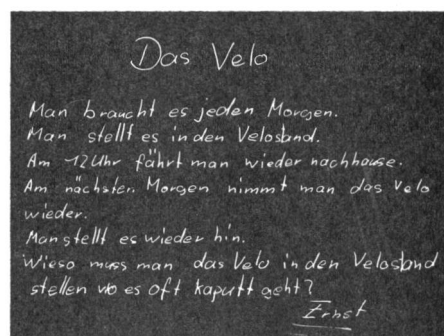 Das Velo
Man braucht es jeden Morgen.
Man stellt es in den Velostand.
Am 12 Uhr fährt man wieder nachhause.
Am nächsten Morgen nimmt man das Velo
wieder.
Man stellt es wieder hin.
Wieso muss man das Velo in den Velostand
stellen wo es oft kaputt geht?
Ernst